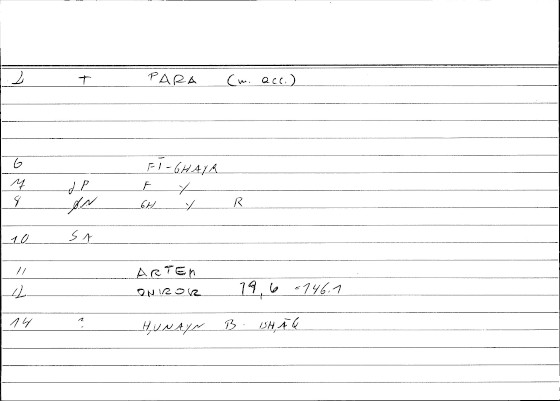 1 + PARA (w. acc.)
6 FĪ-GHAYR
7 JP F Y
8 JN GH Y R
10 SA
11 ARTEM
12 ONIROK 19,6 = 146.1
14 ? ḤUNAYN B. ISḤĀQ